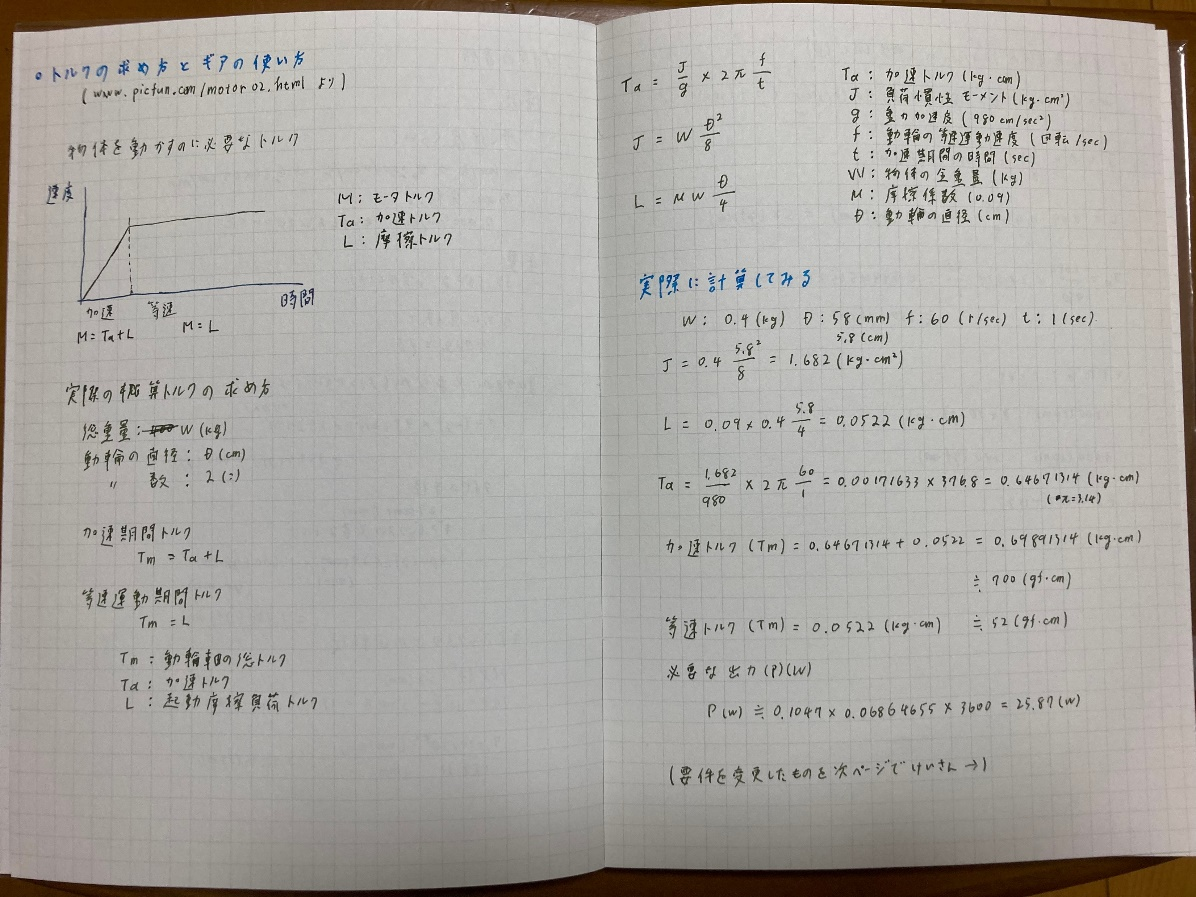 ○トルクの求め方とギアの使い方
(www.picfun.com/motor02.html より)
物体を動かすのに必要なトルク
速度
M: モータトルク
Ta: 加速トルク
L: 摩擦トルク
時間
加速 等速
M=Ta+L M=L
実際の概算トルクの求め方
総重量: W(kg)
動輪の直径: D(cm)
〃 数: 2(コ)
加速期間トルク
Tm = Ta + L
等速運動期間トルク
Tm = L
Tm: 動輪軸の総トルク
Ta: 加速トルク
L: 起動摩擦負荷トルク
Ta = J/g × 2π f/t
J = W D²/8
L = μ W D/4
Ta: 加速トルク(kg・cm)
J: 負荷慣性モーメント(kg・cm²)
g: 重力加速度(980cm/sec²)
f: 動輪の等速運動速度(回転/sec)
t: 加速期間の時間(sec)
W: 物体の全重量(kg)
μ: 摩擦係数(0.09)
D: 動輪の直径(cm)
実際に計算してみる
W: 0.4(kg) D: 58(mm) f: 60(r/sec) t: 1(sec).
5.8(cm)
J = 0.4 5.8²/8 = 1.682(kg・cm²)
L = 0.09×0.4 5.8/4 = 0.0522(kg・cm)
Ta = 1.682/980 × 2π 60/1 = 0.00171633×376.8 = 0.64671314(kg・cm)
(*π=3.14)
加速トルク(Tm) = 0.64671314 + 0.0522 = 0.69891314(kg・cm)
≒ 700(gf・cm)
等速トルク(Tm) = 0.0522(kg・cm) ≒ 52(gf・cm)
必要な出力(P)(W)
P(w) ≒ 0.1047 × 0.06864655 × 3600 = 25.87(w)
(要件を変更したものを次ページでけいさん→)